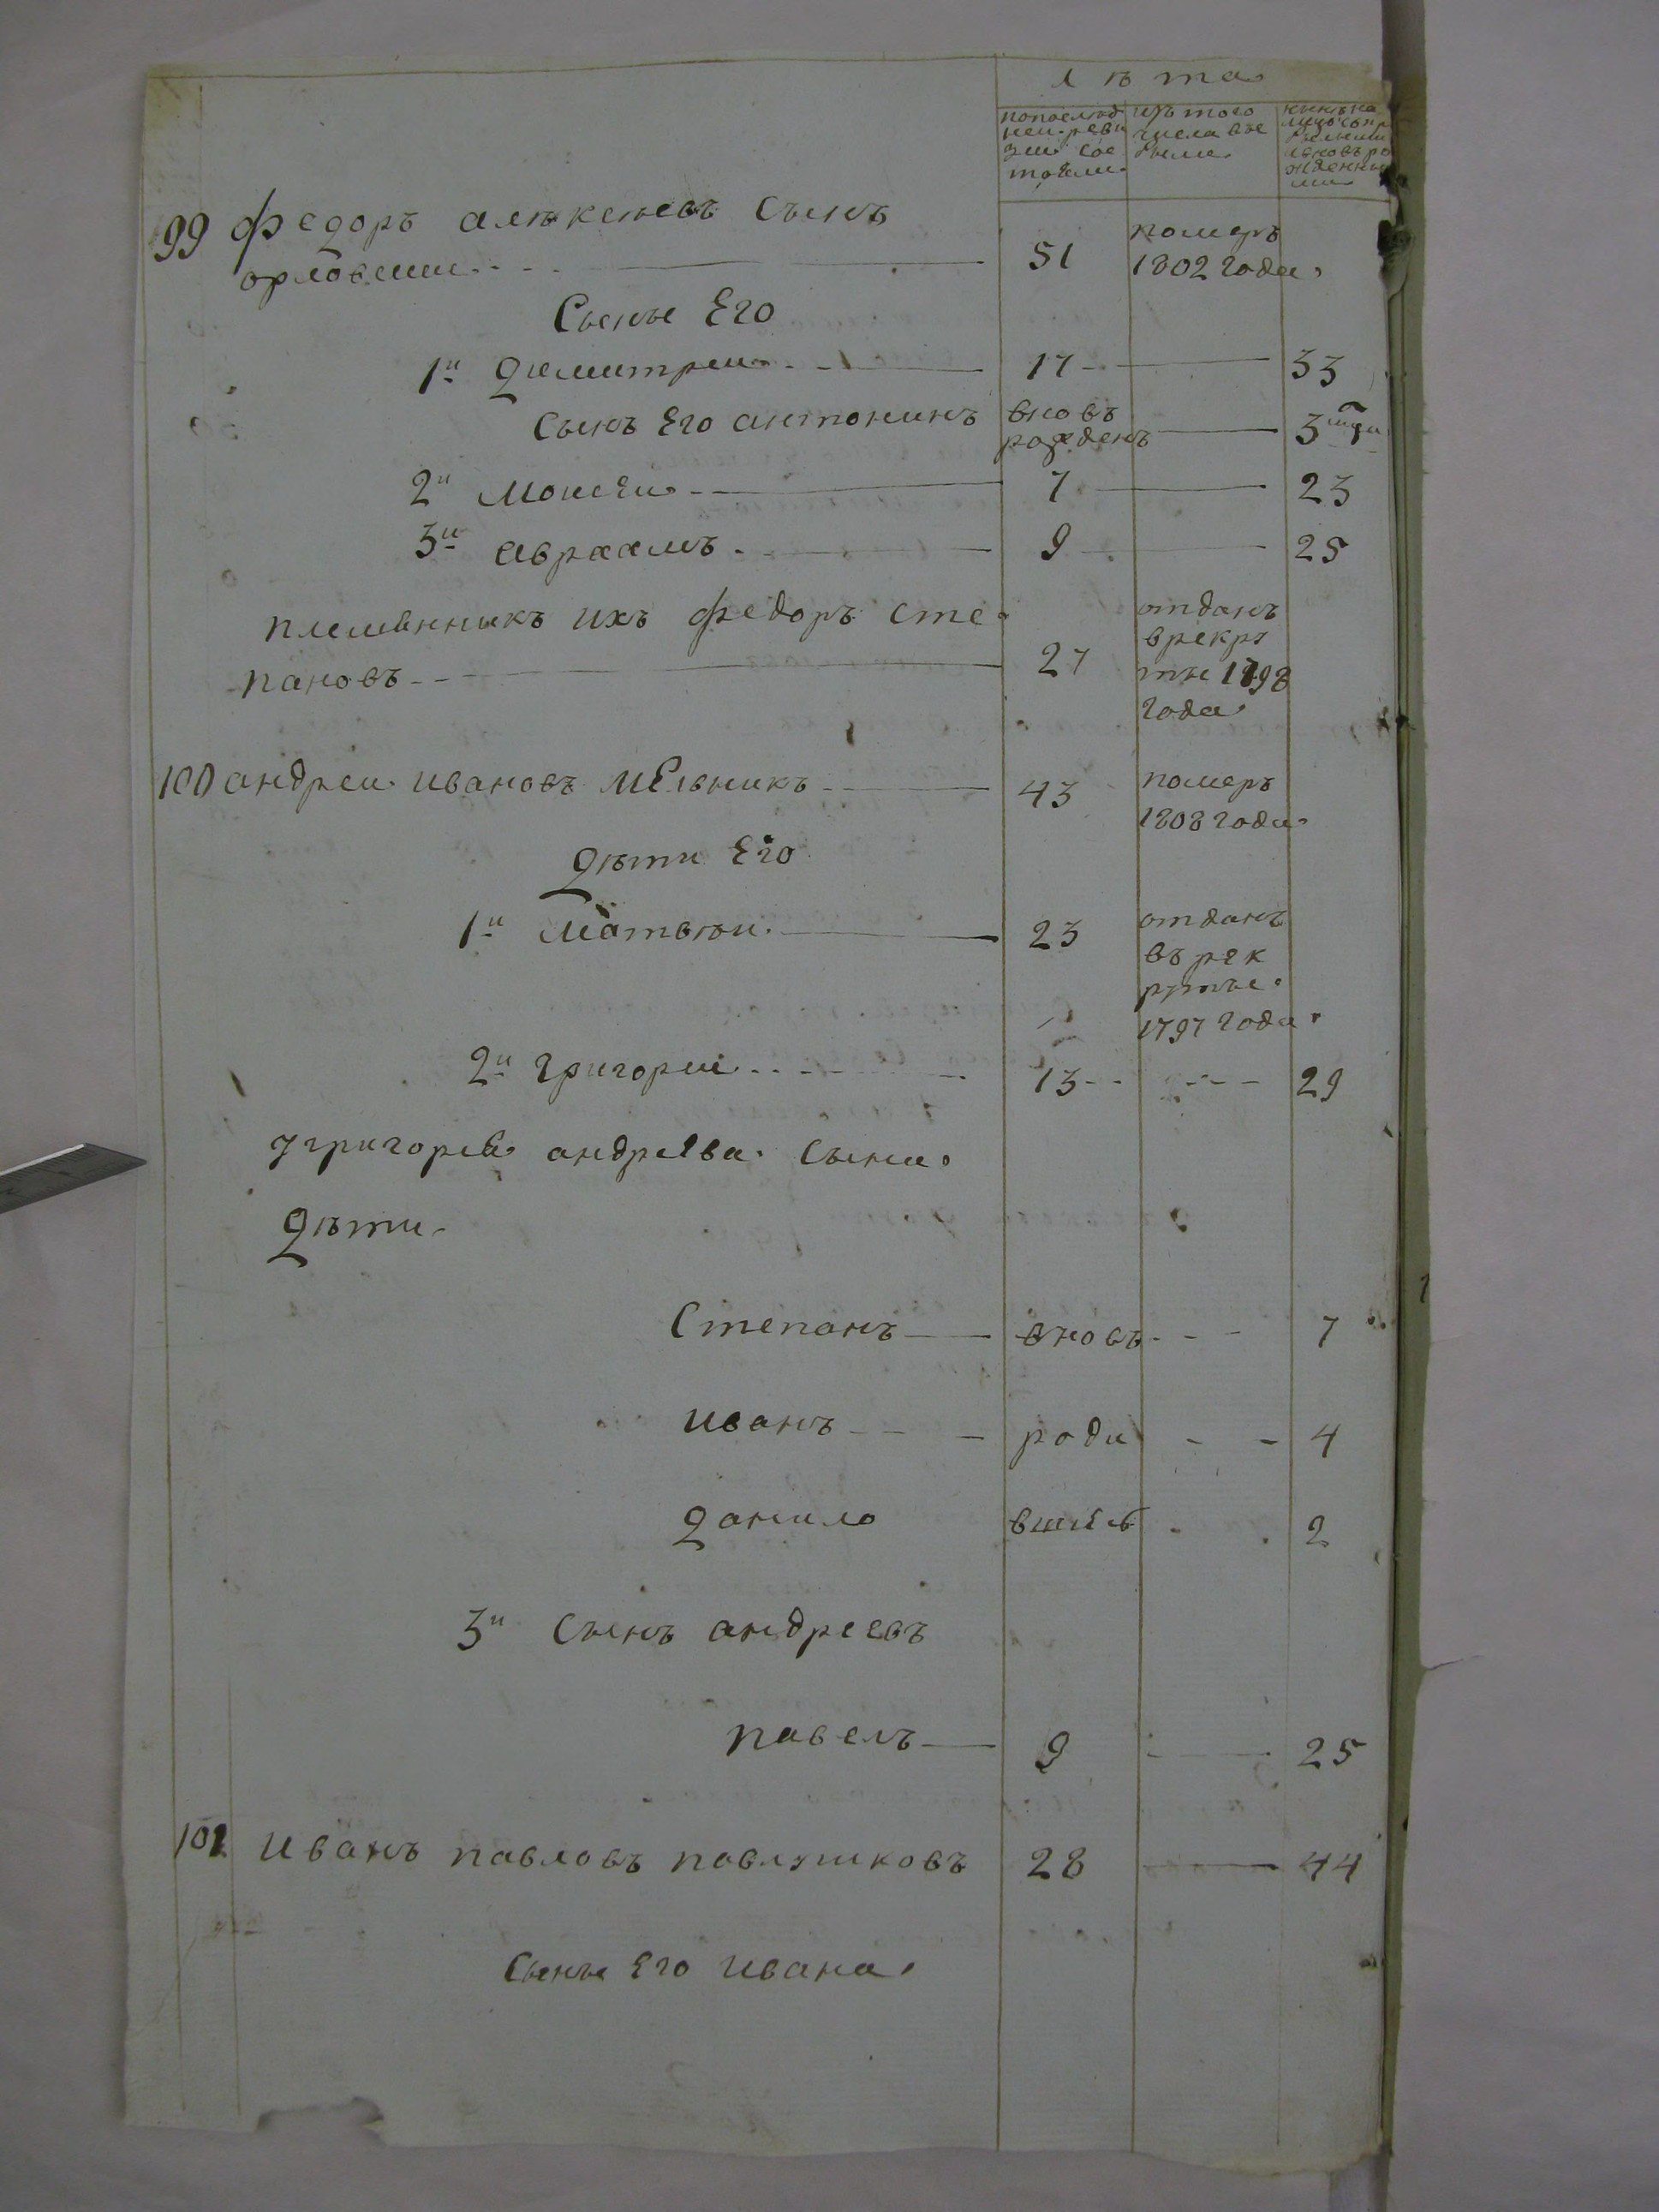 лѣта
попослѣд ней реви зии сос тояли
изъ того числа вы были
99 Федоръ алѣксѣевъ Сынъ 51 померъ
орловсии 1802 года
Сыны Его
1й Димитреи 17 33
Сынъ Его антонинъ вновь рожденъ 3
2й Моисеи 7 23
3й авраамъ 9 25
племянникъ ихъ федоръ сте
пановъ 27 отданъ врекру ты 1798 года
100 андреи ивановъ мельникъ 43 померъ 1808 года
Дѣти Его
1й Матвѣи 23 отданъ въ рек руты 1797 года
2й Григореи 13 29
у григорея андреева Сына
Дѣти
Степанъ вновь 7
иванъ роди 4
Данило вшиеся 2
3й Сынъ андреевъ
павелъ 9 25
101 иванъ павловъ павлушковъ 28 44
Сыны Его ивана